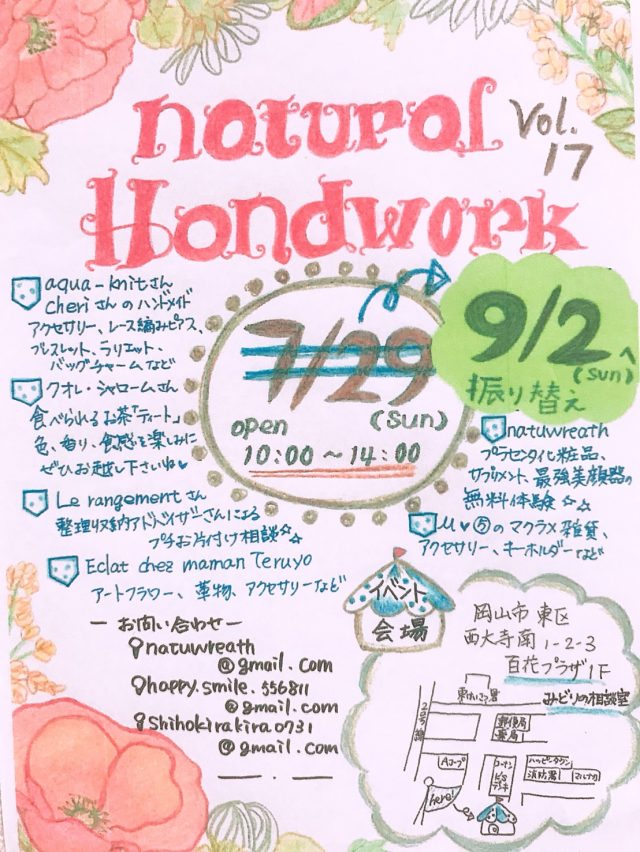 natural
Vol.
17
Handwork
aqua-knitさん
cheriさんのハンドメイド
アクセサリー、レース編みピアス、
ブレスレット、ラリエット、
バッグチャームなど
クオレ・シャロームさん
食べられるお茶「ティート」
色、香り、食感を楽しみに
ぜひお越し下さいね♥
Le rangementさん
整理収納アドバイザーさんによる
プチお片付け相談☆☆
Eclat chez maman Teruyo
アートフラワー、革物、アクセサリーなど
7/29
(sun)
open
10:00~14:00
9/2
(sun)へ
振り替え
natuwreath
プラセンタ化粧品、
サプリメント、最強美顔器の
無料体験☆☆
アクセサリー、キーホルダーなど
のマクラメ雑貨、
イベント
会場
岡山市東区
西大寺南1-2-3
百花プラザ1F
みどりの相談室
東けいさつ署
2号線
郵便局
薬局
Aコープ
コーナン
ハッピータウン
消防署
マルナカ
here!
ーお問い合わせー
natuwreath
@gmail.com
happy.smile.556811
@gmail.com
shihokirakira0731
@gmail.com